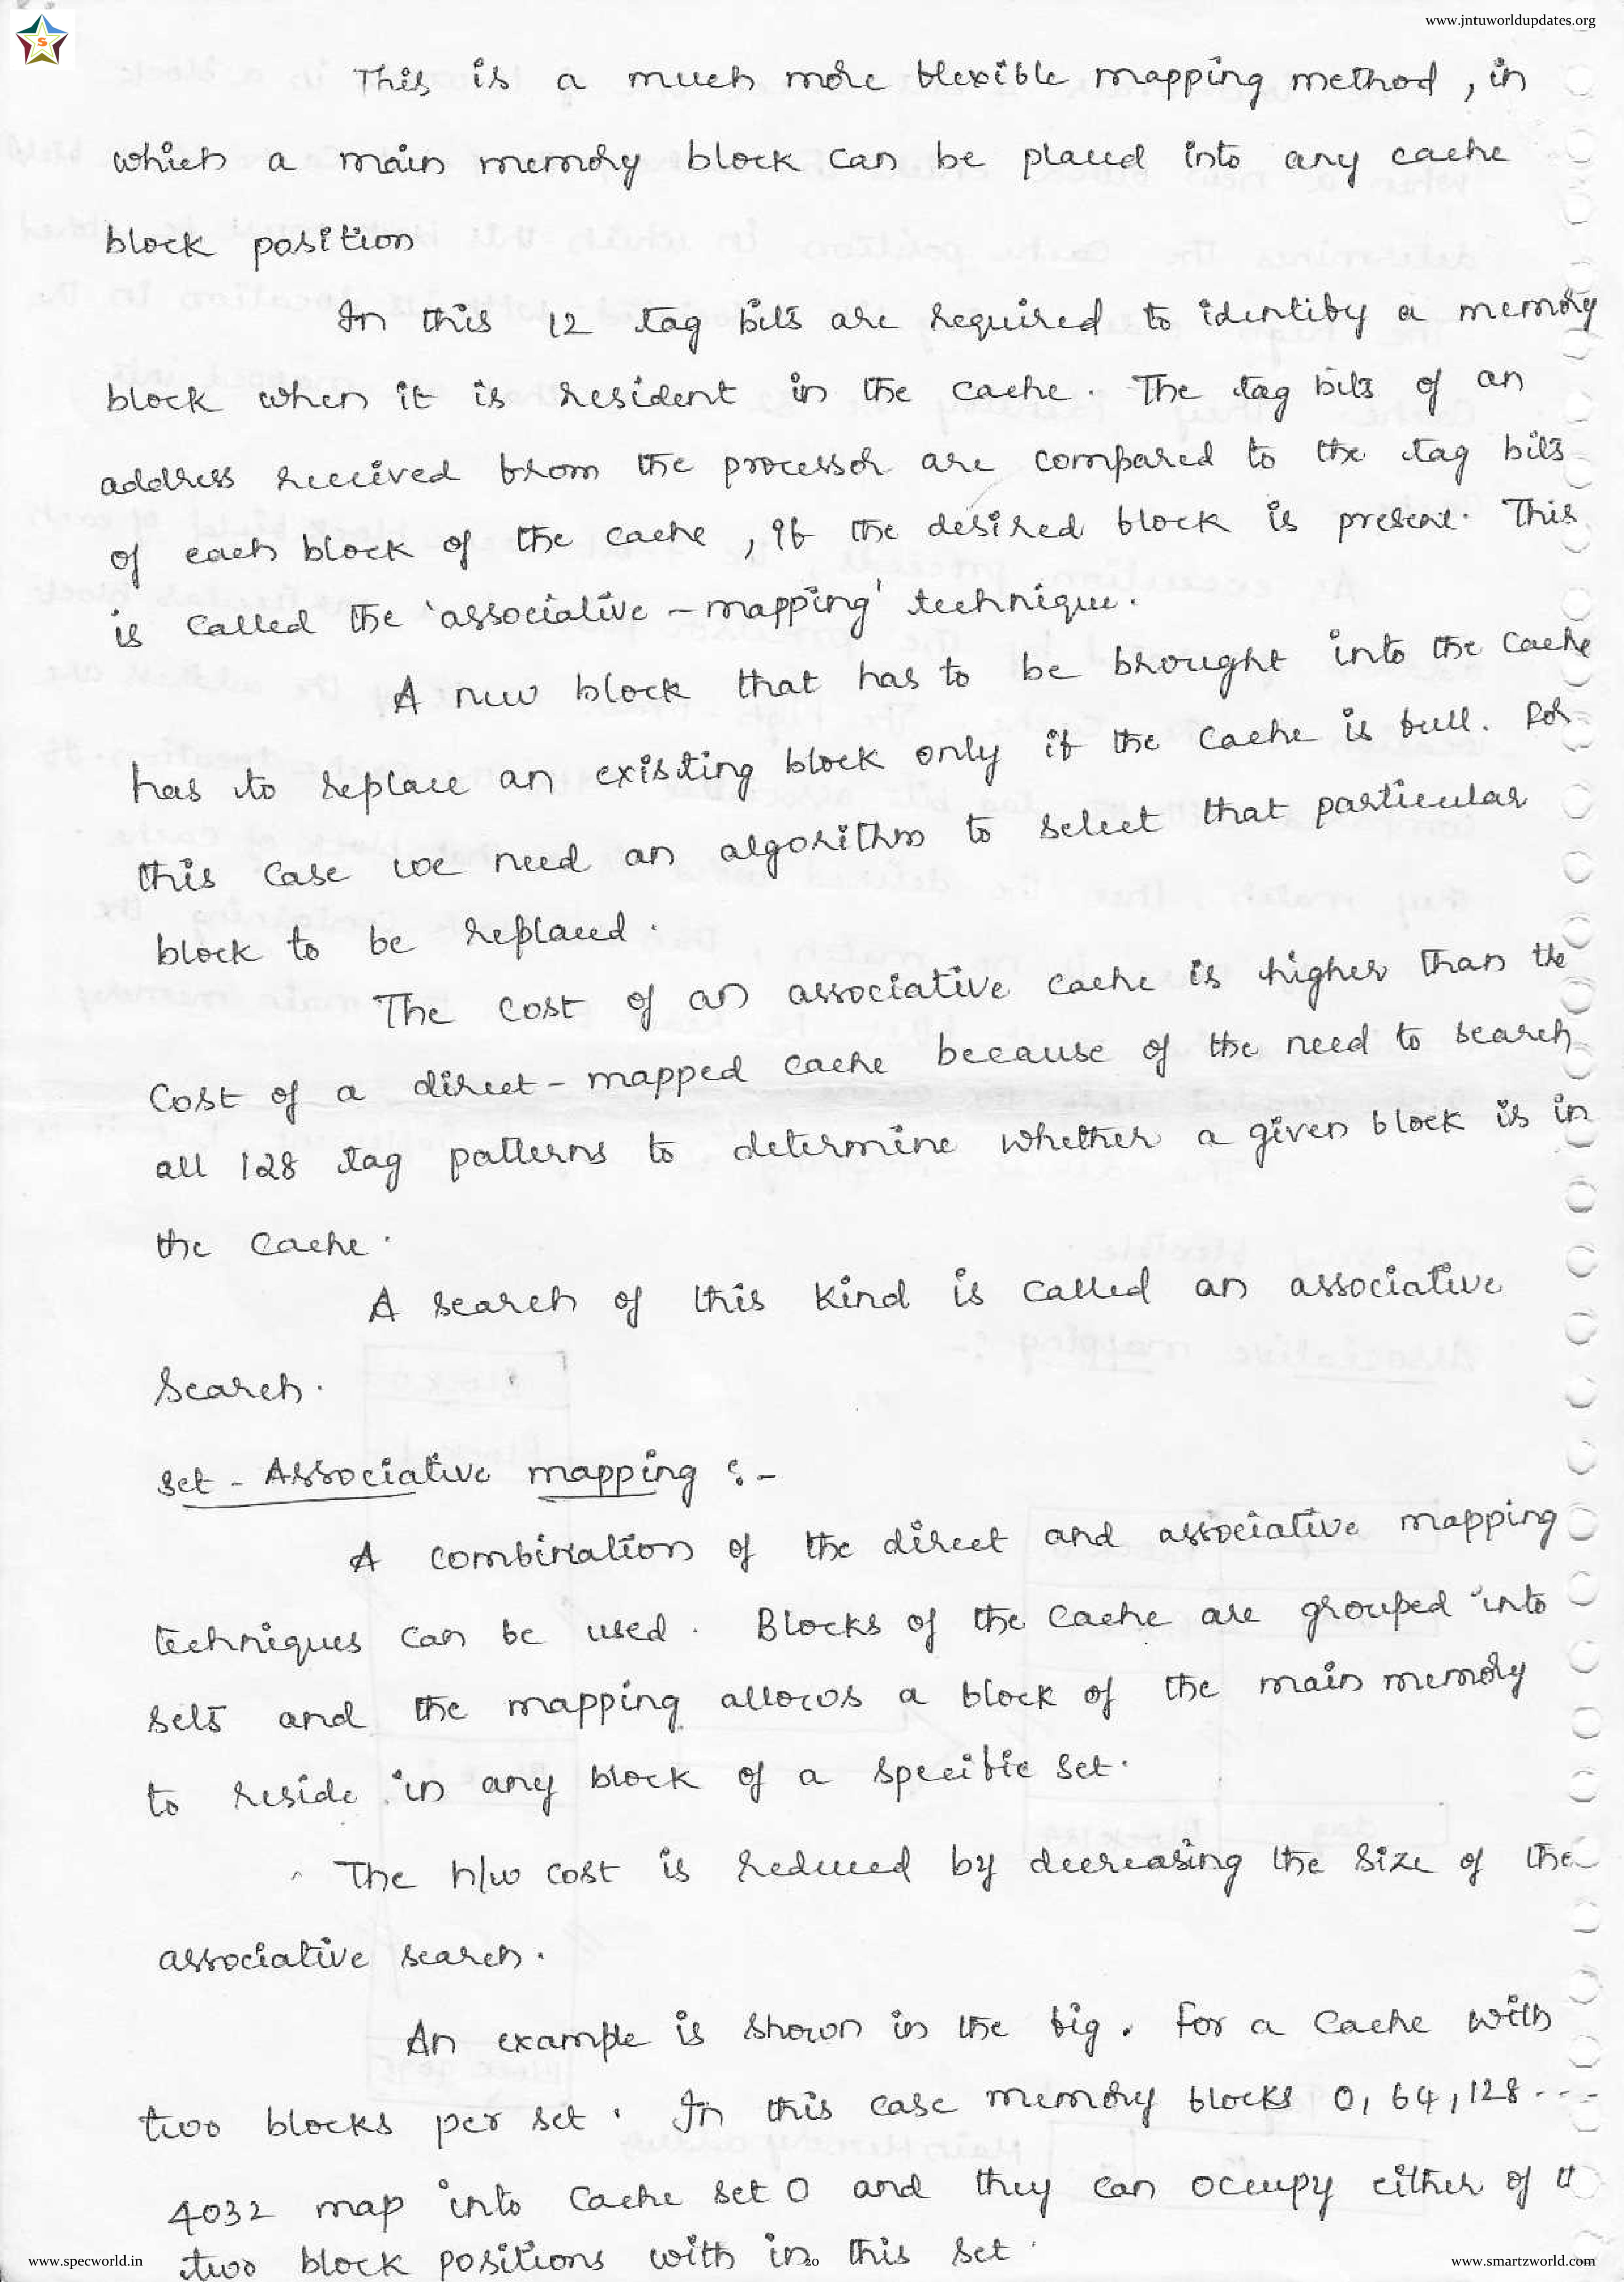 www.jntuworldupdates.org
S
This is a much more flexible mapping method, in
which a main memory block can be placed into any cache
block position
In this 12 tag bits are required to identify a memory
block when it is resident in the cache. The tag bits of an
address received from the processor are compared to the tag bits
of each block of the cache, if the desired block is present. This
is called the 'associative - mapping' technique.
A new block that has to be brought into the cache
has to replace an existing block only if the cache is full. For
this case we need an algorithm to select that particular
block to be replaced.
The cost of an associative cache is higher than the
cost of a direct - mapped cache because of the need to search
all 128 tag patterns to determine whether a given block is in
the cache.
A search of this kind is called an associative
search.
Set - Associative mapping :-
A combination of the direct and associative mapping
techniques can be used. Blocks of the cache are grouped into
sets and the mapping allows a block of the main memory
to reside in any block of a specific set.
The h/w cost is reduced by decreasing the size of the
associative search.
An example is shown in the fig. For a cache with
two blocks per set. In this case memory blocks 0, 64, 128 ----
4032 map into cache set 0 and they can occupy either of
two block positions with in this set.
www.specworld.in
www.smartzworld.com